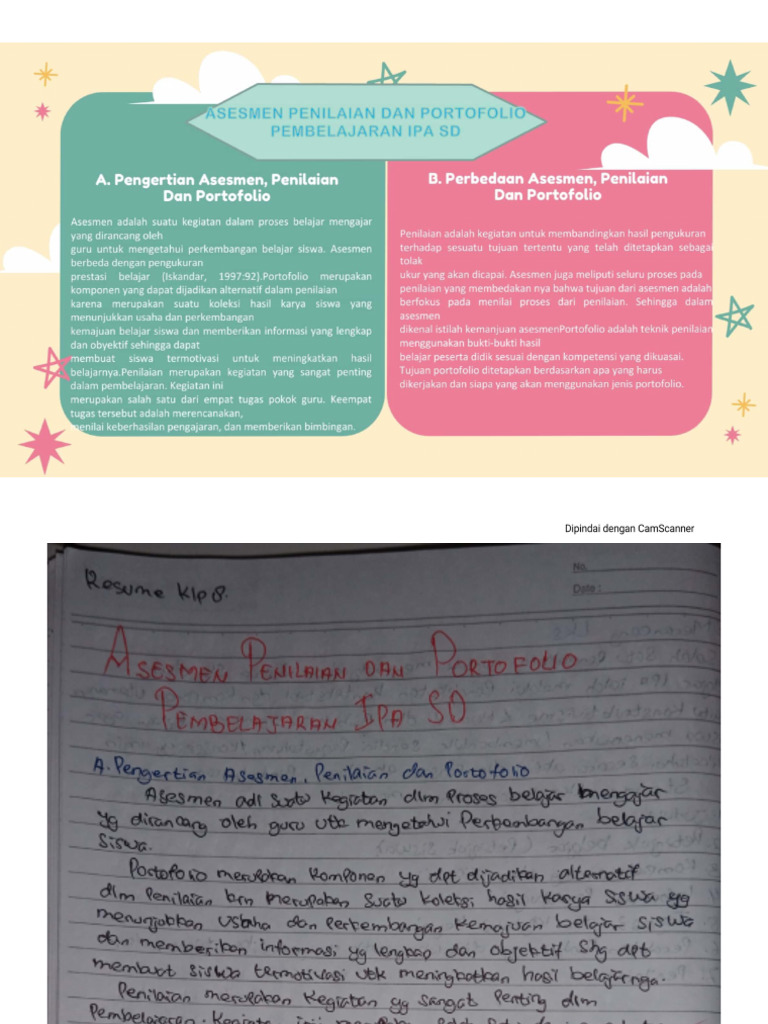 ASESMEN PENILAIAN DAN PORTOFOLIO
PEMBELAJARAN IPA SD
A. Pengertian Asesmen, Penilaian
Dan Portofolio
Asesmen adalah suatu kegiatan dalam proses belajar mengajar
yang dirancang oleh
guru untuk mengetahui perkembangan belajar siswa. Asesmen
berbeda dengan pengukuran
prestasi belajar (Iskandar, 1997:92).Portofolio merupakan
komponen yang dapat dijadikan alternatif dalam penilaian
karena merupakan suatu koleksi hasil karya siswa yang
menunjukkan usaha dan perkembangan
kemajuan belajar siswa dan memberikan informasi yang lengkap
dan obyektif sehingga dapat
membuat siswa termotivasi untuk meningkatkan hasil
belajarnya.Penilaian merupakan kegiatan yang sangat penting
dalam pembelajaran. Kegiatan ini
merupakan salah satu dari empat tugas pokok guru. Keempat
tugas tersebut adalah merencanakan,
menilai keberhasilan pengajaran, dan memberikan bimbingan.
B. Perbedaan Asesmen, Penilaian
Dan Portofolio
Penilaian adalah kegiatan untuk membandingkan hasil pengukuran
terhadap sesuatu tujuan tertentu yang telah ditetapkan sebagai
tolak
ukur yang akan dicapai. Asesmen juga meliputi seluru proses pada
penilaian yang membedakan nya bahwa tujuan dari asesmen adalah
berfokus pada menilai proses dari penilaian. Sehingga dalam
asesmen
dikenal istilah kemanjuan asesmenPortofolio adalah teknik penilaian
menggunakan bukti-bukti hasil
belajar peserta didik sesuai dengan kompetensi yang dikuasai.
Tujuan portofolio ditetapkan berdasarkan apa yang harus
dikerjakan dan siapa yang akan menggunakan jenis portofolio.
Dipindai dengan CamScanner
No.
Date :
Resume Klp 8.
ASESMEN PENILAIAN DAN PORTOFOLIO
PEMBELAJARAN IPA SD
A. Pengertian Asesmen, Penilaian dan Portofolio
Asesmen adl suatu kegiatan dlm proses belajar mengajar
yg dirancang oleh guru utk mengetahui perkembangan belajar
siswa.
Portofolio merupakan komponen yg dpt dijadikan alternatif
dlm penilaian krn merupakan suatu koleksi hasil karya siswa yg
menunjukkan usaha dan perkembangan kemajuan belajar siswa
dan memberikan informasi yg lengkap dan objektif shg dpt
membuat siswa termotivasi utk meningkatkan hasil belajarnya.
Penilaian merupakan kegiatan yg sangat penting dlm
pembelajaran. Kegiatan ini